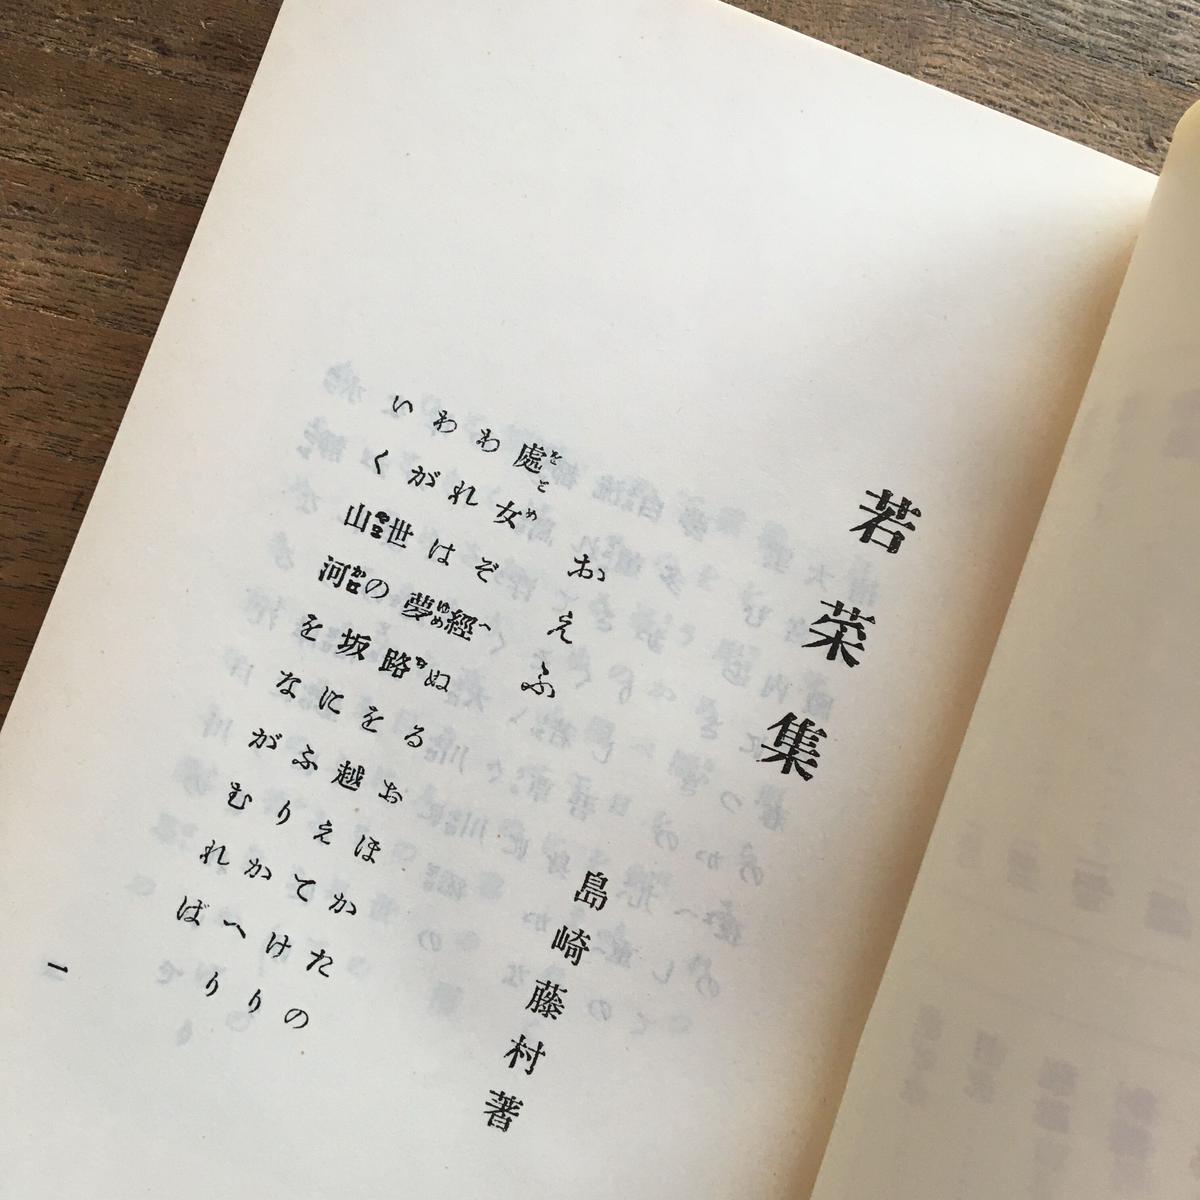 若菜集
島崎藤村著
おえふ
處女ぞ經ぬるおほかたの
われは夢路を越えてけり
わが世の坂にふりかへり
いく山河をながむれば
一